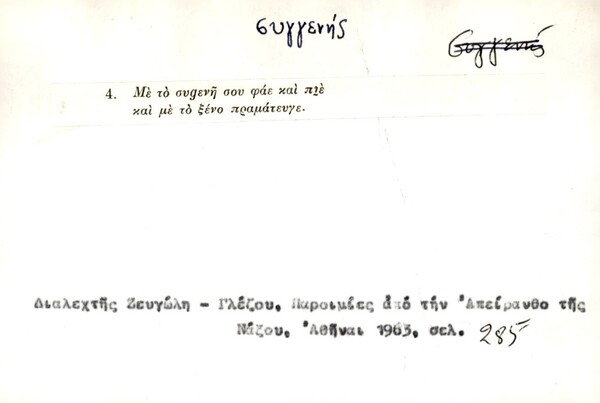 συγγενής
Συγγενής
4. Μὲ τὸ συgενῆ σου φάε καὶ πχ̮ὲ
καὶ μὲ τὸ ξένο πραμάτευγε.
Διαλεχτῆς Ζευγώλη - Γλέζου, Παροιμίες ἀπό τήν Ἀπείρανθο τῆς
Νάξου, Ἀθῆναι 1963, σελ. 285